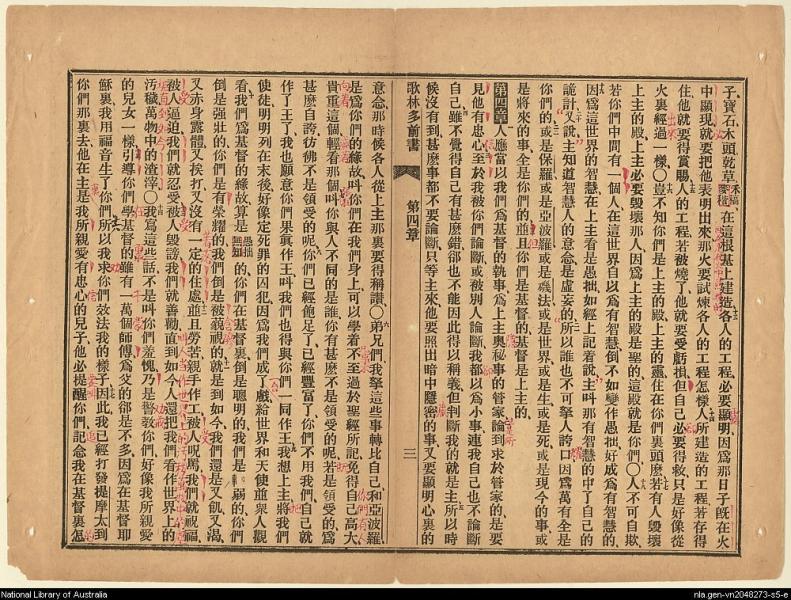 子寶石木頭乾草禾稿在這根基上建造各人的工程必要顯明因爲那日子旣在火
中顯現就要把他表明出來那火要試煉各人的工程怎樣人所建造的工程若存得
住他就要得賞賜人的工程若被燒了他就要受虧損但自己必要得救只是好像從
火裏經過一樣〇豈不知你們是上主的殿上主的靈住在你們裏頭麼若有人毀壞
上主的殿上主必要毀壞那人因爲上主的殿是聖的這殿就是你們〇人不可自欺
若你們中間有一個人在這世界自以爲有智慧倒不如變作愚拙好成爲有智慧的
因爲這世界的智慧在上主看是愚拙如經上記着說主叫那有智慧的中了自己的
詭計又說主知道智慧人的意念是虛妄的所以誰也不可拏人誇口因爲萬有全是
你們的或是保羅或是亞波羅或是磯法或是世界或是生或是死或是現今的事或
是將來的事全是你們的並且你們是基督的基督是上主的
第四章 人應當以我們爲基督的執事爲上主奧秘事的管家論到求於管家的是要
見他有忠心至於我被你們論斷或被別人論斷我都以爲小事連我自己也不論斷
自己雖不覺得自己有甚麼錯卻也不能因此得以稱義但判斷我的就是主所以時
候沒有到甚麼事都不要論斷只等主來他要照出暗中隱密的事又要顯明心裏的
歌林多前書 第四章 三
意念那時候各人從上主那裏要得稱讚〇弟兄們我拏這些事轉比自己和亞波羅
是爲你們的緣故叫你們在我們身上可以學着不至過於聖經所記免得自己高大
貴重這個輕看那個叫你與人不同的是誰你有甚麼不是領受的呢若是領受的爲
甚麼自誇彷彿不是領受的呢你們已經飽足了已經豐富了你們不用我們自己就
作了王了我也願意你們果眞作王叫我們也得與你們一同作王我想上主將我們
使徒明明列在末後好像定死罪的囚犯因爲我們成了戲給世界和天使並衆人觀
看我們爲基督的緣故算是愚拙無知的你們在基督裏倒是聰明的我們是弱的你們
倒是强壯的你們是有榮耀的我們倒是被藐視的就是到如今我們還是又飢又渴
又赤身露體又挨打又沒有一定的住處並且勞苦親手作工被人呪罵我們就祝福
被人逼迫我們就忍受被人毀謗我們就善勸直到如今人還把我們看作世界上的
汚穢萬物中的渣滓〇我寫這些話不是叫你們羞愧乃是警教你們好像我所親愛
的兒女一樣引導你們學基督的雖有一萬個師傅爲父的卻是不多因爲在基督耶
穌裏我用福音生了你們所以我求你們效法我的樣子因此我已經打發提摩太到
你們那裏去他在主是我所親愛有忠心的兒子他必提醒你們記念我在基督裏怎
National Library of Australia
nla.gen-vn2048273-s5-e